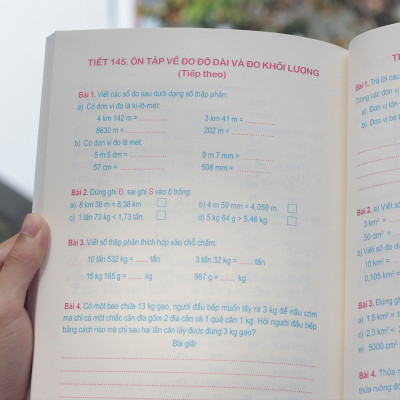 TIẾT 145. ÔN TẬP VỀ ĐO ĐỘ DÀI VÀ ĐO KHỐI LƯỢNG
(Tiếp theo)
Bài 1. Viết các số đo sau dưới dạng số thập phân:
a) Có đơn vị đo là ki-lô-mét:
4 km 142 m = ............ 3 km 41 m = ............
8630 m = ............ 202 m = ............
b) Có đơn vị đo là mét:
5 m 5 dm = ............ 9 m 7 mm = ............
57 cm = ............ 508 mm = ............
Bài 2. Đúng ghi Đ, sai ghi S vào ô trống:
a) 8 km 38 m = 8,38 km. b) 4 m 59 mm = 4,059 m.
c) 1 tấn 73 kg < 1,73 tấn. d) 5 kg 64 g > 5,46 kg.
Bài 3. Viết số thập phân thích hợp vào chỗ chấm:
10 tấn 532 kg = ........ tấn 3 tấn 32 kg = ........ tấn
15 kg 165 g = ........ kg 987 g = ........ kg
Bài 4. Có một bao chứa 13 kg gạo, người đầu bếp muốn lấy ra 3 kg để nấu cơm
mà chỉ có một chiếc cân đĩa gồm 2 đĩa cân và 1 quả cân 1 kg. Hỏi người đầu bếp
bằng cách nào mà chỉ sau hai lần cân lấy được đúng 3 kg gạo?
Bài giải
Bài 1. Trả lời các
Trong các đơn vị
a) Đơn vị lớn
b) Đơn vị bé
Bài 2. a) Viết số
3 km² =
50 dm² =
b) Viết số đo
10 km² =
0,105 km² =
Bài 3. Đúng ghi
a) 1,5 km²
c) 2,3 km² <
e) 5000 cm²
Bài 4. Thửa
thửa ruộng đó